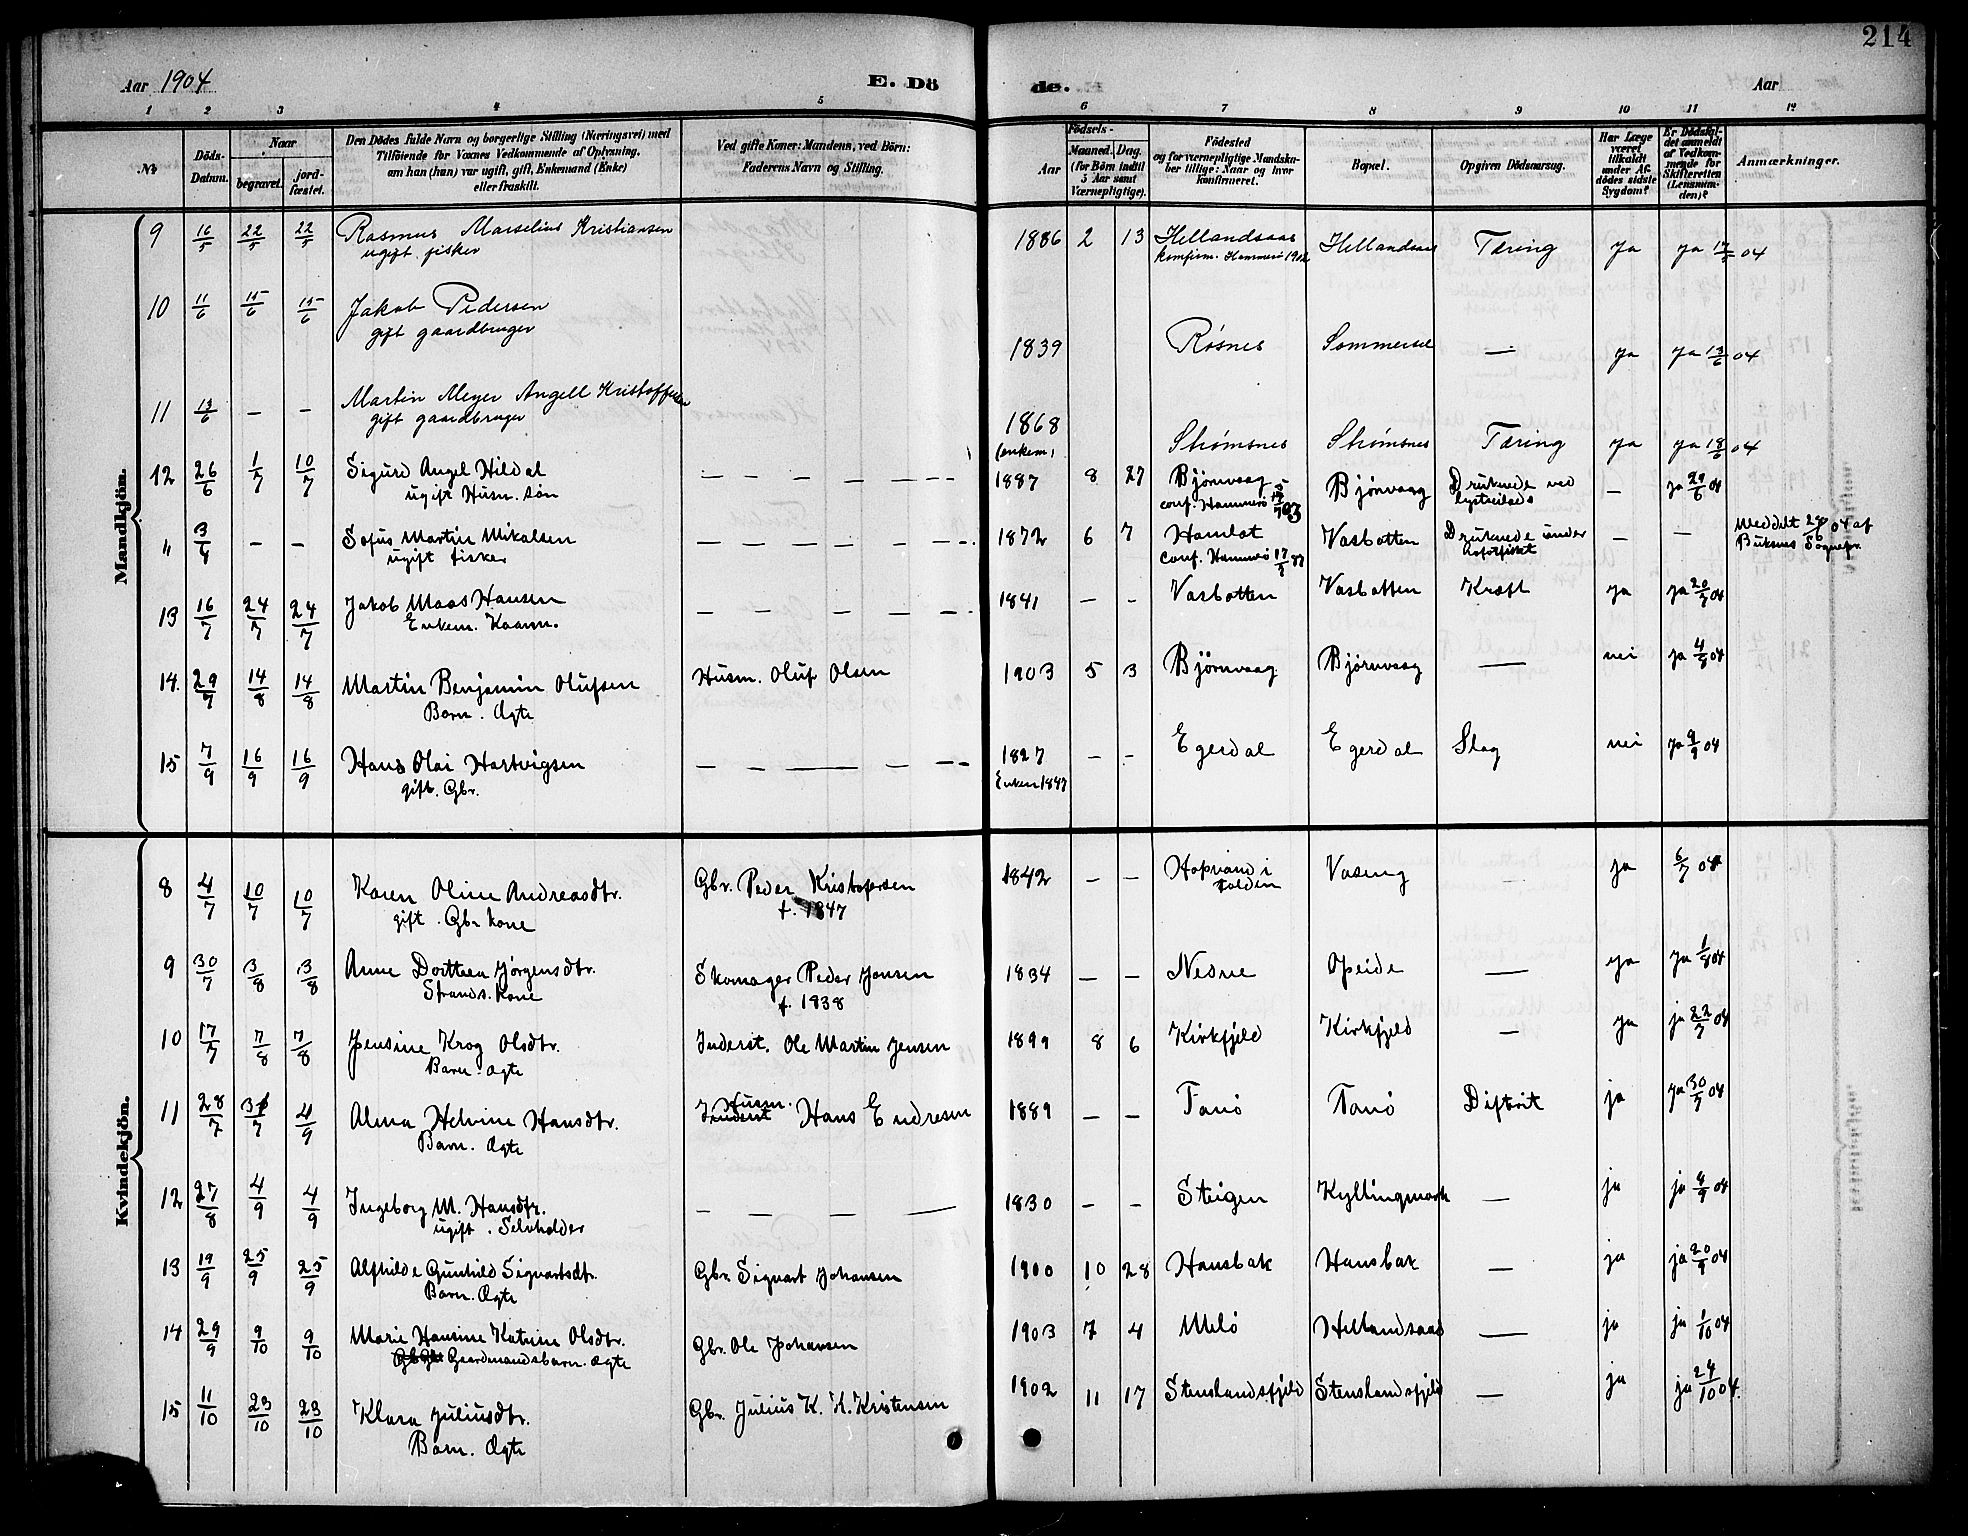 214
Aar 1904 E. Dö de. Aar
1 2 3 4 5 6 7 8 9 10 11 12
№ Döds-Datum. Naar begravet. jordfæstet. Den Dödes fulde Navn og borgerlige Stilling (Næringsvei) med Tilföiende for Voxnes Vedkommende af Oplysning, om han (hun) var ugift, gift, Enkemand (Enke) eller fraskilt. Ved gifte Koner: Mandens, ved Börn: Faderens Navn og Stilling. Födsels- Aar Maaned. Dag. (for Börn indtil 5 Aar samt Værnepligtige). Födested og for værnepligtige Mandskaber tillige: Naar og hvor konfirmeret. Bopæl. Opgiven Dödsaarsag. Har Læge været tilkaldt under Afdödes sidste Sygdom? Er Dödsfaldet anmeldt af Vedkommende for Skifteretten (Lensmanden)? Anmærkninger.
Mandkjön.
9 16/5 22/5 22/5 Rasmus Marselius Kristiansen 1886 2 13 Hellandsaas Hellandsaas Tæring ja ja 17/5 04
ugift. fisker konfirm. Hammerø 1902
10 11/6 15/6 15/6 Jakob Pedersen
gift gaardbruger 1839 Røsnes Sommersel — ja ja 13/6 04
11 13/6 – – Martin Meyer Angell Kristoffersen
gift gaardbruger 1868 Strømsnes Strømsnes Tæring ja ja 18/6 04
(enkem)
12 26/6 1/7 10/7 Sigurd Angel Hildal — — — — — — 1887 8 27 Bjørnvaag Bjørnvaag Druknede ved — ja 29/6 04
ugift Husm. søn conf. Hammerø 03 lystseilads
" 3/4 – – Sofus Martin Mikalsen — — — — — — 1872 6 7 Hamlot Vasbotten Druknede under — — Meddelt 04 af
ugift fisker conf. Hammerø Lofotfisket Buksnes Sognepr.
13 16/7 24/7 24/7 Jakob Maas Hansen — — — — — 1841 – – Vasbotten Vasbotten Kræft ja ja 20/7 04
Enkem. Kaarm.
14. 29/7 14/8 14/8 Martin Benjamin Olufsen Husm. Oluf Olsen 1903 5 3 Bjørnvaag Bjørnvaag — nei ja 4/8 04
Barn. Ægte
15 7/9 16/9 16/9 Hans Olai Hartvigsen — — — — — 1827 – – Egerdal Egerdal Slag nei ja 9/9 04
gift. Gbr. Enken 1847
Kvindekjön.
8 4/7 10/7 10/7 Karen Oline Andreasdtr. Gbr. Peder Kristofersen 1842 – – Hopvand i Vaseng — ja 6/7 04
gift. Gbr kone f. 1847 Folden
9 30/7 3/8 3/8 Anne Dorthea Jørgensdtr. Skomager Peder Jensen 1834 – – Nesne Opeide — ja ja 1/8 04
Strands. kone f. 1838
10 17/7 7/8 7/8 Jensine Krog Olsdtr. Inderst. Ole Martin Jensen 1899 8 6 Kirkfjeld Kirkfjeld — ja ja 22/7 04
Barn. Ægte
11 28/7 /7 4/9 Alma Helvine Hansdtr. Inderst Husm. Hans Endresen 1889 – – Tanö Tanö Difterit ja ja 30/7 04
Barn. Ægte
12 27/8 4/9 4/9 Ingeborg M. Hansdtr. — — — — 1830 – – Steigen Kyllingmark — ja ja 4/9 04
ugift. Selvholder
13 19/9 25/9 25/9 Alfhilde Gunhild Sigvartsdtr. Gbr. Sigvart Johansen 1900 10 28 Hansbak Hansbak — ja ja 20/9 04
Barn. Ægte
14 29/9 9/10 9/10 Marie Hansine Katrine Olsdtr. Gbr. Ole Johansen 1903 7 4 Melö Hellandsaas — ja ja 1/10 04
Gaardmandsbarn. Ægte
15 11/10 23/10 23/10 Klara Juliusdtr. Gbr. Julius K. H. Kristensen 1902 11 17 Stenslandsfjeld Stenslandsfjeld — ja ja 24/10 04.
Barn. Ægte